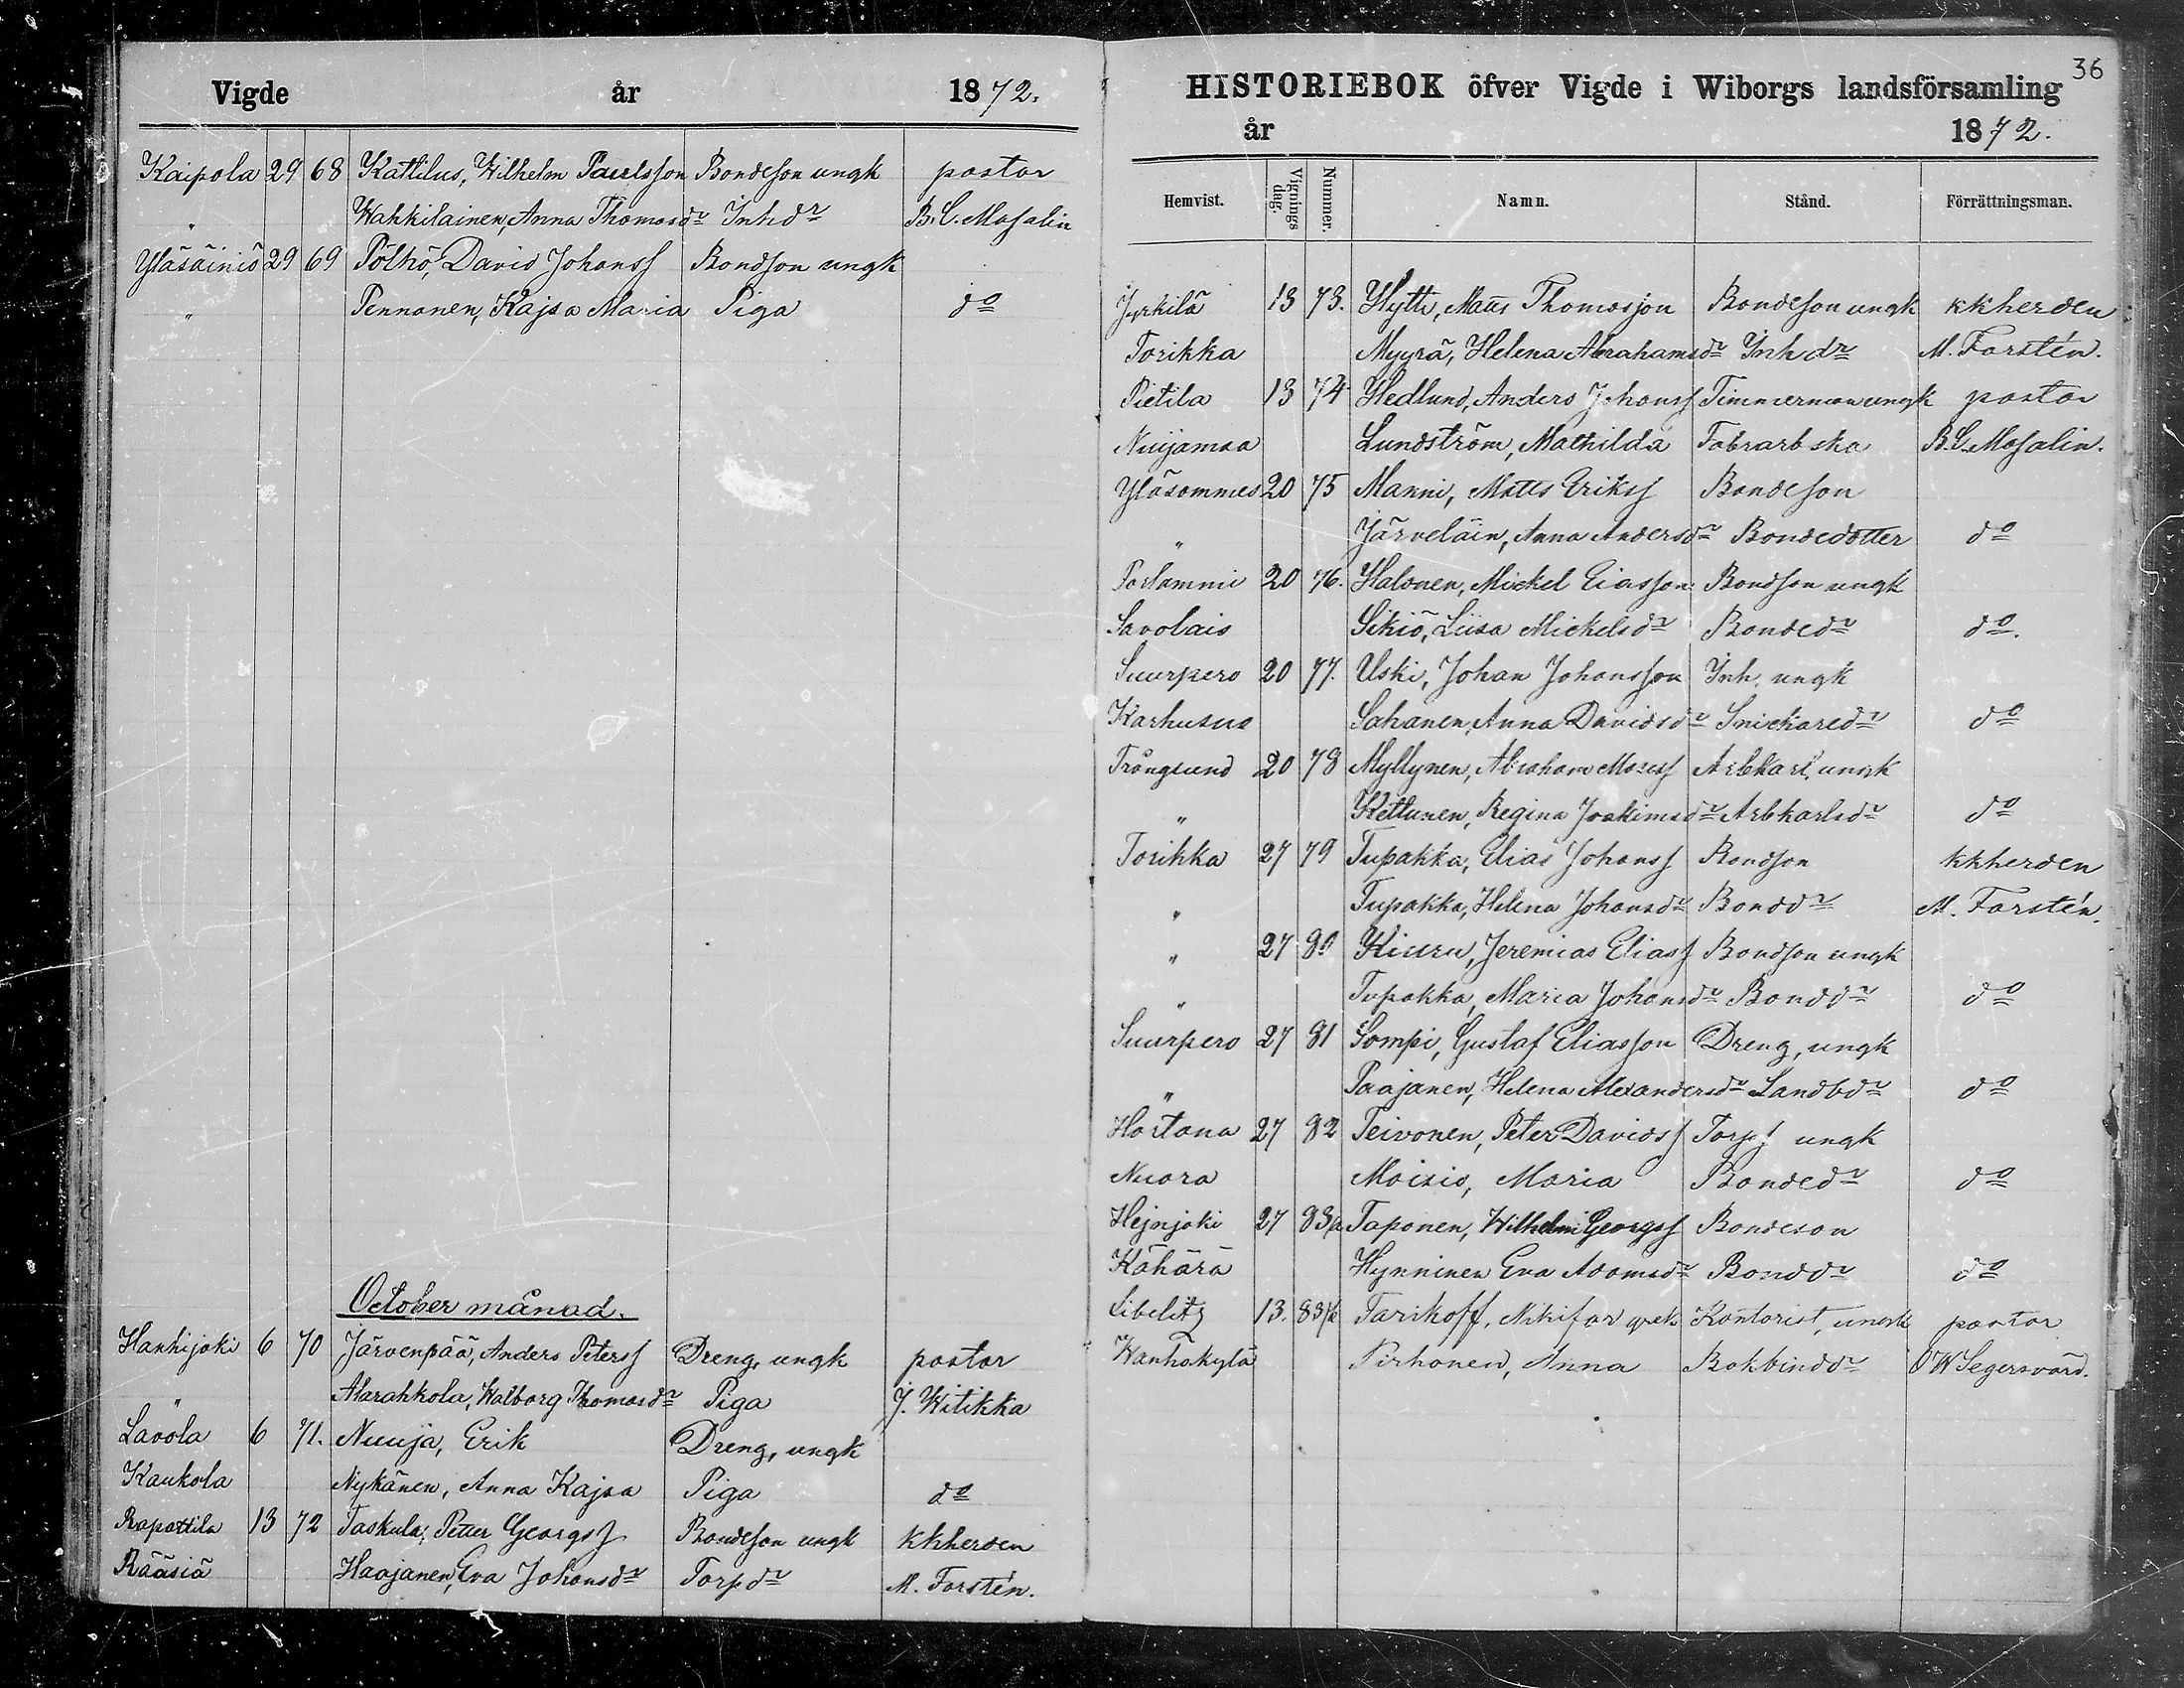 Vigde år 1872.
Kaipola 29 68 Kattilus, Wilhelm Paulsson Bondeson ungk pastor
" Wahkilainen, Anna Thomasdr Inhdr B. C. Mosalin
Yläsäiniö 29 69 Pölhö, David Johanss Bondson ungk
" Pennanen, Kajsa Maria Piga do
October månad.
Hanhijoki 6 70 Järvenpää, Anders Peterss Dreng, ungk pastor
" Marahkola, Walborg Thomasdr Piga J. Witikka
Lavola 6 71. Nuija, Erik Dreng, ungk
Kaukola Nykänen, Anna Kajsa Piga do
Rapattila 13 72 Taskula, Petter Georgss Bondeson ungk kkherden
Rääsiä Haajanen, Eva Johansdr Torpdr M. Forstén.
36
HISTORIEBOK öfver Vigde i Wiborgs landsförsamling
år 1872.
Hemvist. Vignings dag. Nummer. Namn. Stånd. Förrättningsman.
Jyrkilä 13 73. Hytti, Matts Thomasson Bondeson ungk kkherden
Torikka Myyrä, Helena Abrahamsdr Inhdr M. Forstén.
Pietila 13 74 Hedlund, Anders Johanss Timmerman ungk pastor
Nuijamaa Lundström, Mathilda Fabrarbska B. C. Mosalin.
Yläsommes 20 75 Manni, Matts Erikss Bondeson
" Järveläin, Anna Andersdr Bondedotter do
Porlammi 20 76. Halonen, Mickel Eiasson Bondson ungk
Savolais Sikiö, Liisa Mickelsdr Bondedr do.
Suurpero 20 77. Uski, Johan Johansson Inh. ungk
Karhusuo Sahanen, Anna Davidsdr Snickaredr do
Trångsund 20 78 Myllynen, Abraham Moses Arbkarl, ungk
" Kettunen, Regina Joakimsdr Arbkarlsdr do
Torikka 27 79 Tupakka, Elias Johanss Bondson kkherden
" Tupakka, Helena Johansdr Bonddr M. Forstén.
" 27 80 Kiuru, Jeremias Eliass Bondson ungk
" Tupakka, Maria Johansdr Bonddr do
Suurpero 27 81 Sompi, Gustaf Eliasson Dreng, ungk
" Paajanen, Helena Alexandersdr Landbdr do
Hortana 27 82 Teivonen, Peter Davidss Torps ungk
Nuora Moisio, Maria Bondedr do
Hejnjoki 27 83/a Taponen, Wilhelm Georgss Bondeson
Kähärä Hynninen Eva Adamsdr Bonddr do
Libelitz 13. 83/b Tarikoff, Nikifor grek Kontorist, ungk pastor
Wanhakylä Pirhonen, Anna Bokbinddr O W Segersvärd.